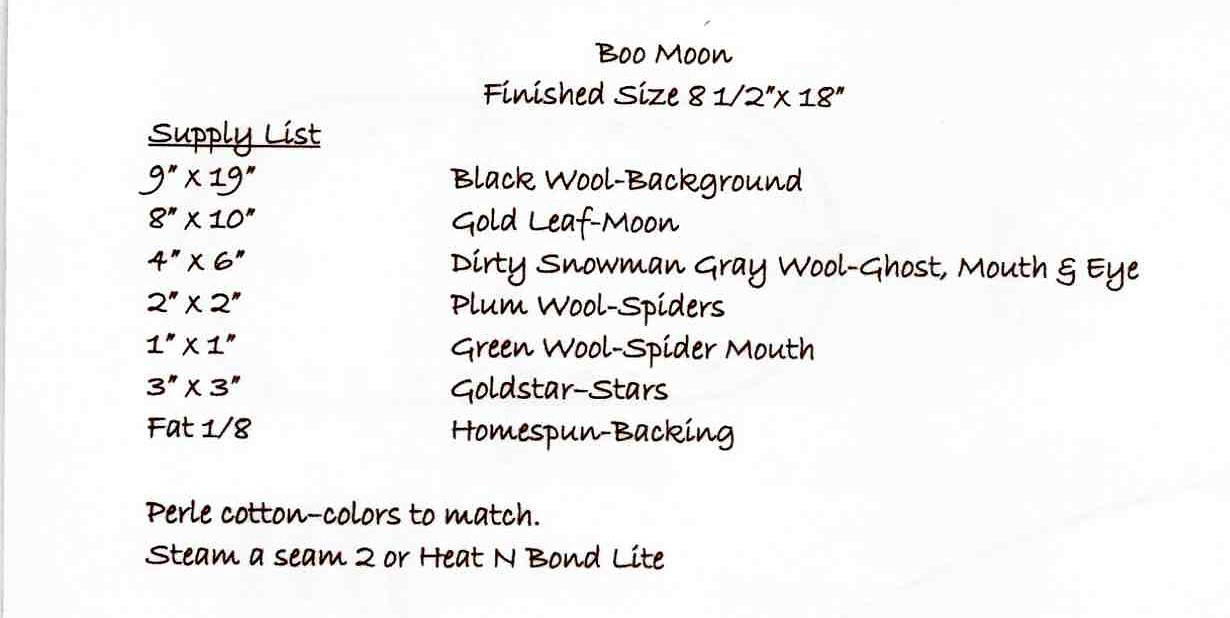 Boo Moon
Finished Size 8 1/2"X 18"
Supply List
9" X 19" Black Wool-Background
8" X 10" Gold Leaf-Moon
4" X 6" Dirty Snowman Gray Wool-Ghost, Mouth & Eye
2" X 2" Plum Wool-Spiders
1" X 1" Green Wool-Spider Mouth
3" X 3" Goldstar-Stars
Fat 1/8 Homespun-Backing
Perle cotton-colors to match.
Steam a seam 2 or Heat N Bond Lite